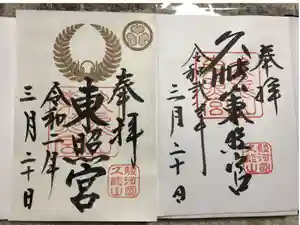 奉拝
東照宮
令和二年
三月二十日
駿河国
久能山
奉拝
久能山東照宮
令和二年
三月二十日
駿河国
久能山